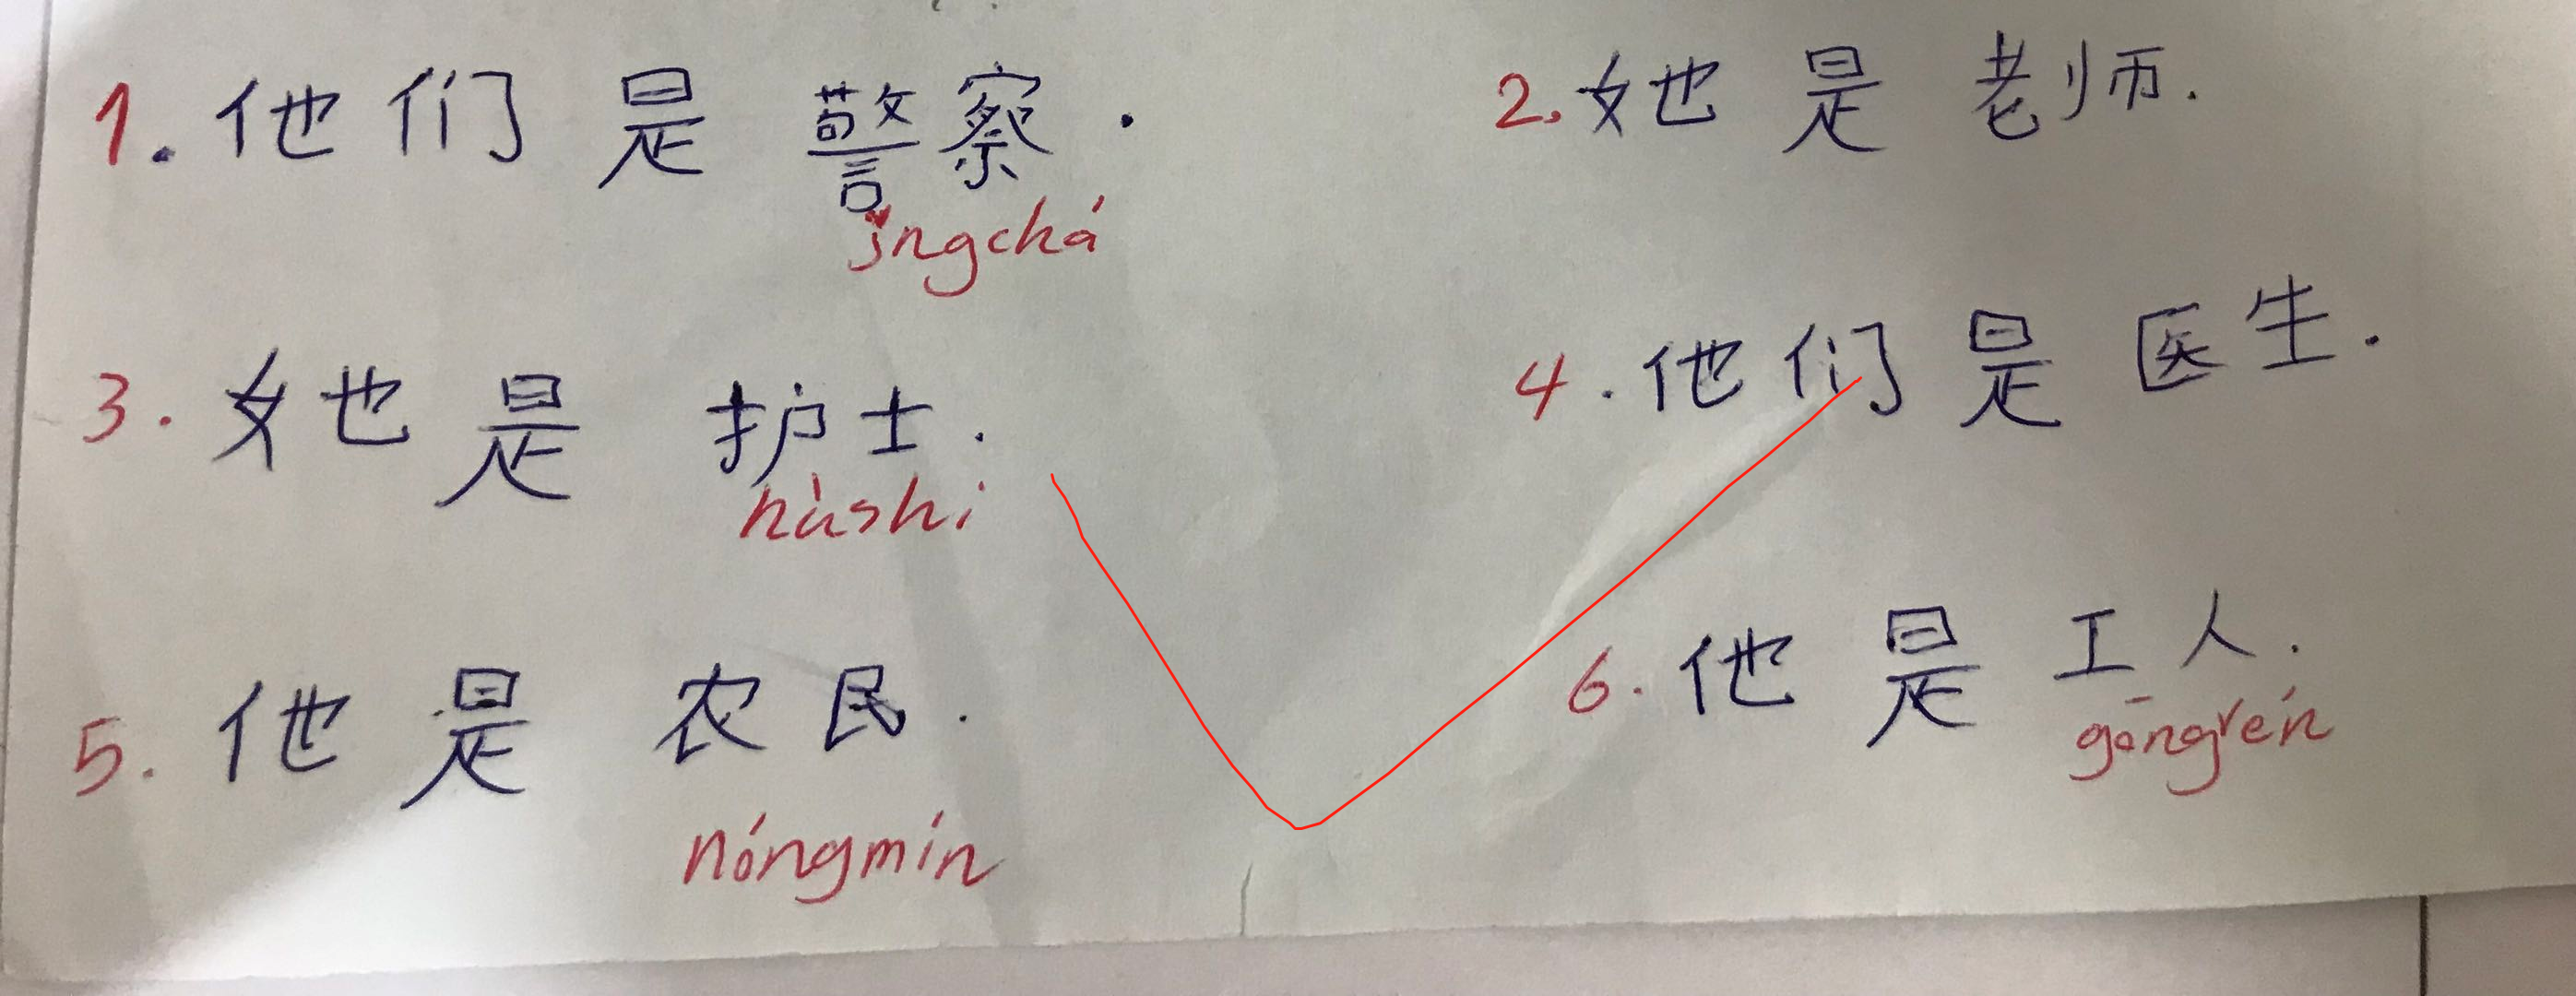 1. 他们是警察.
2. 她是老师.
jngchá
3. 她是护士.
4. 他们是医生.
hùshi
5. 他是农民.
6. 他是工人.
gōngrén
nóngmín